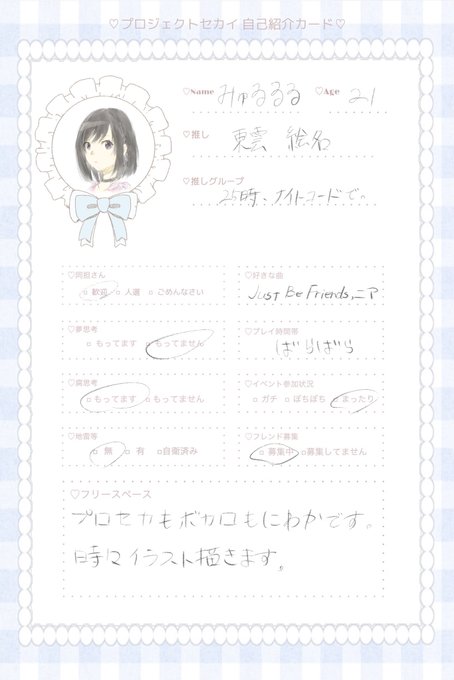 ♡プロジェクトセカイ 自己紹介カード♡
♡Name みゅるるる ♡Age 21
♡推し 東雲 絵名
♡推しグループ
25時、ナイトコードで。
♡同担さん
□歓迎 □人選 □ごめんなさい
♡好きな曲
Just Be Friends,ニア
♡夢思考
□もってます □もってません
♡プレイ時間帯
ばらばら
♡腐思考
□もってます □もってません
♡イベント参加状況
□ガチ □ぼちぼち □まったり
♡地雷等
□無 □有 □自衛済み
♡フレンド募集
□募集中 □募集してません
♡フリースペース
プロセカもボカロもにわかです。
時々イラスト描きます。